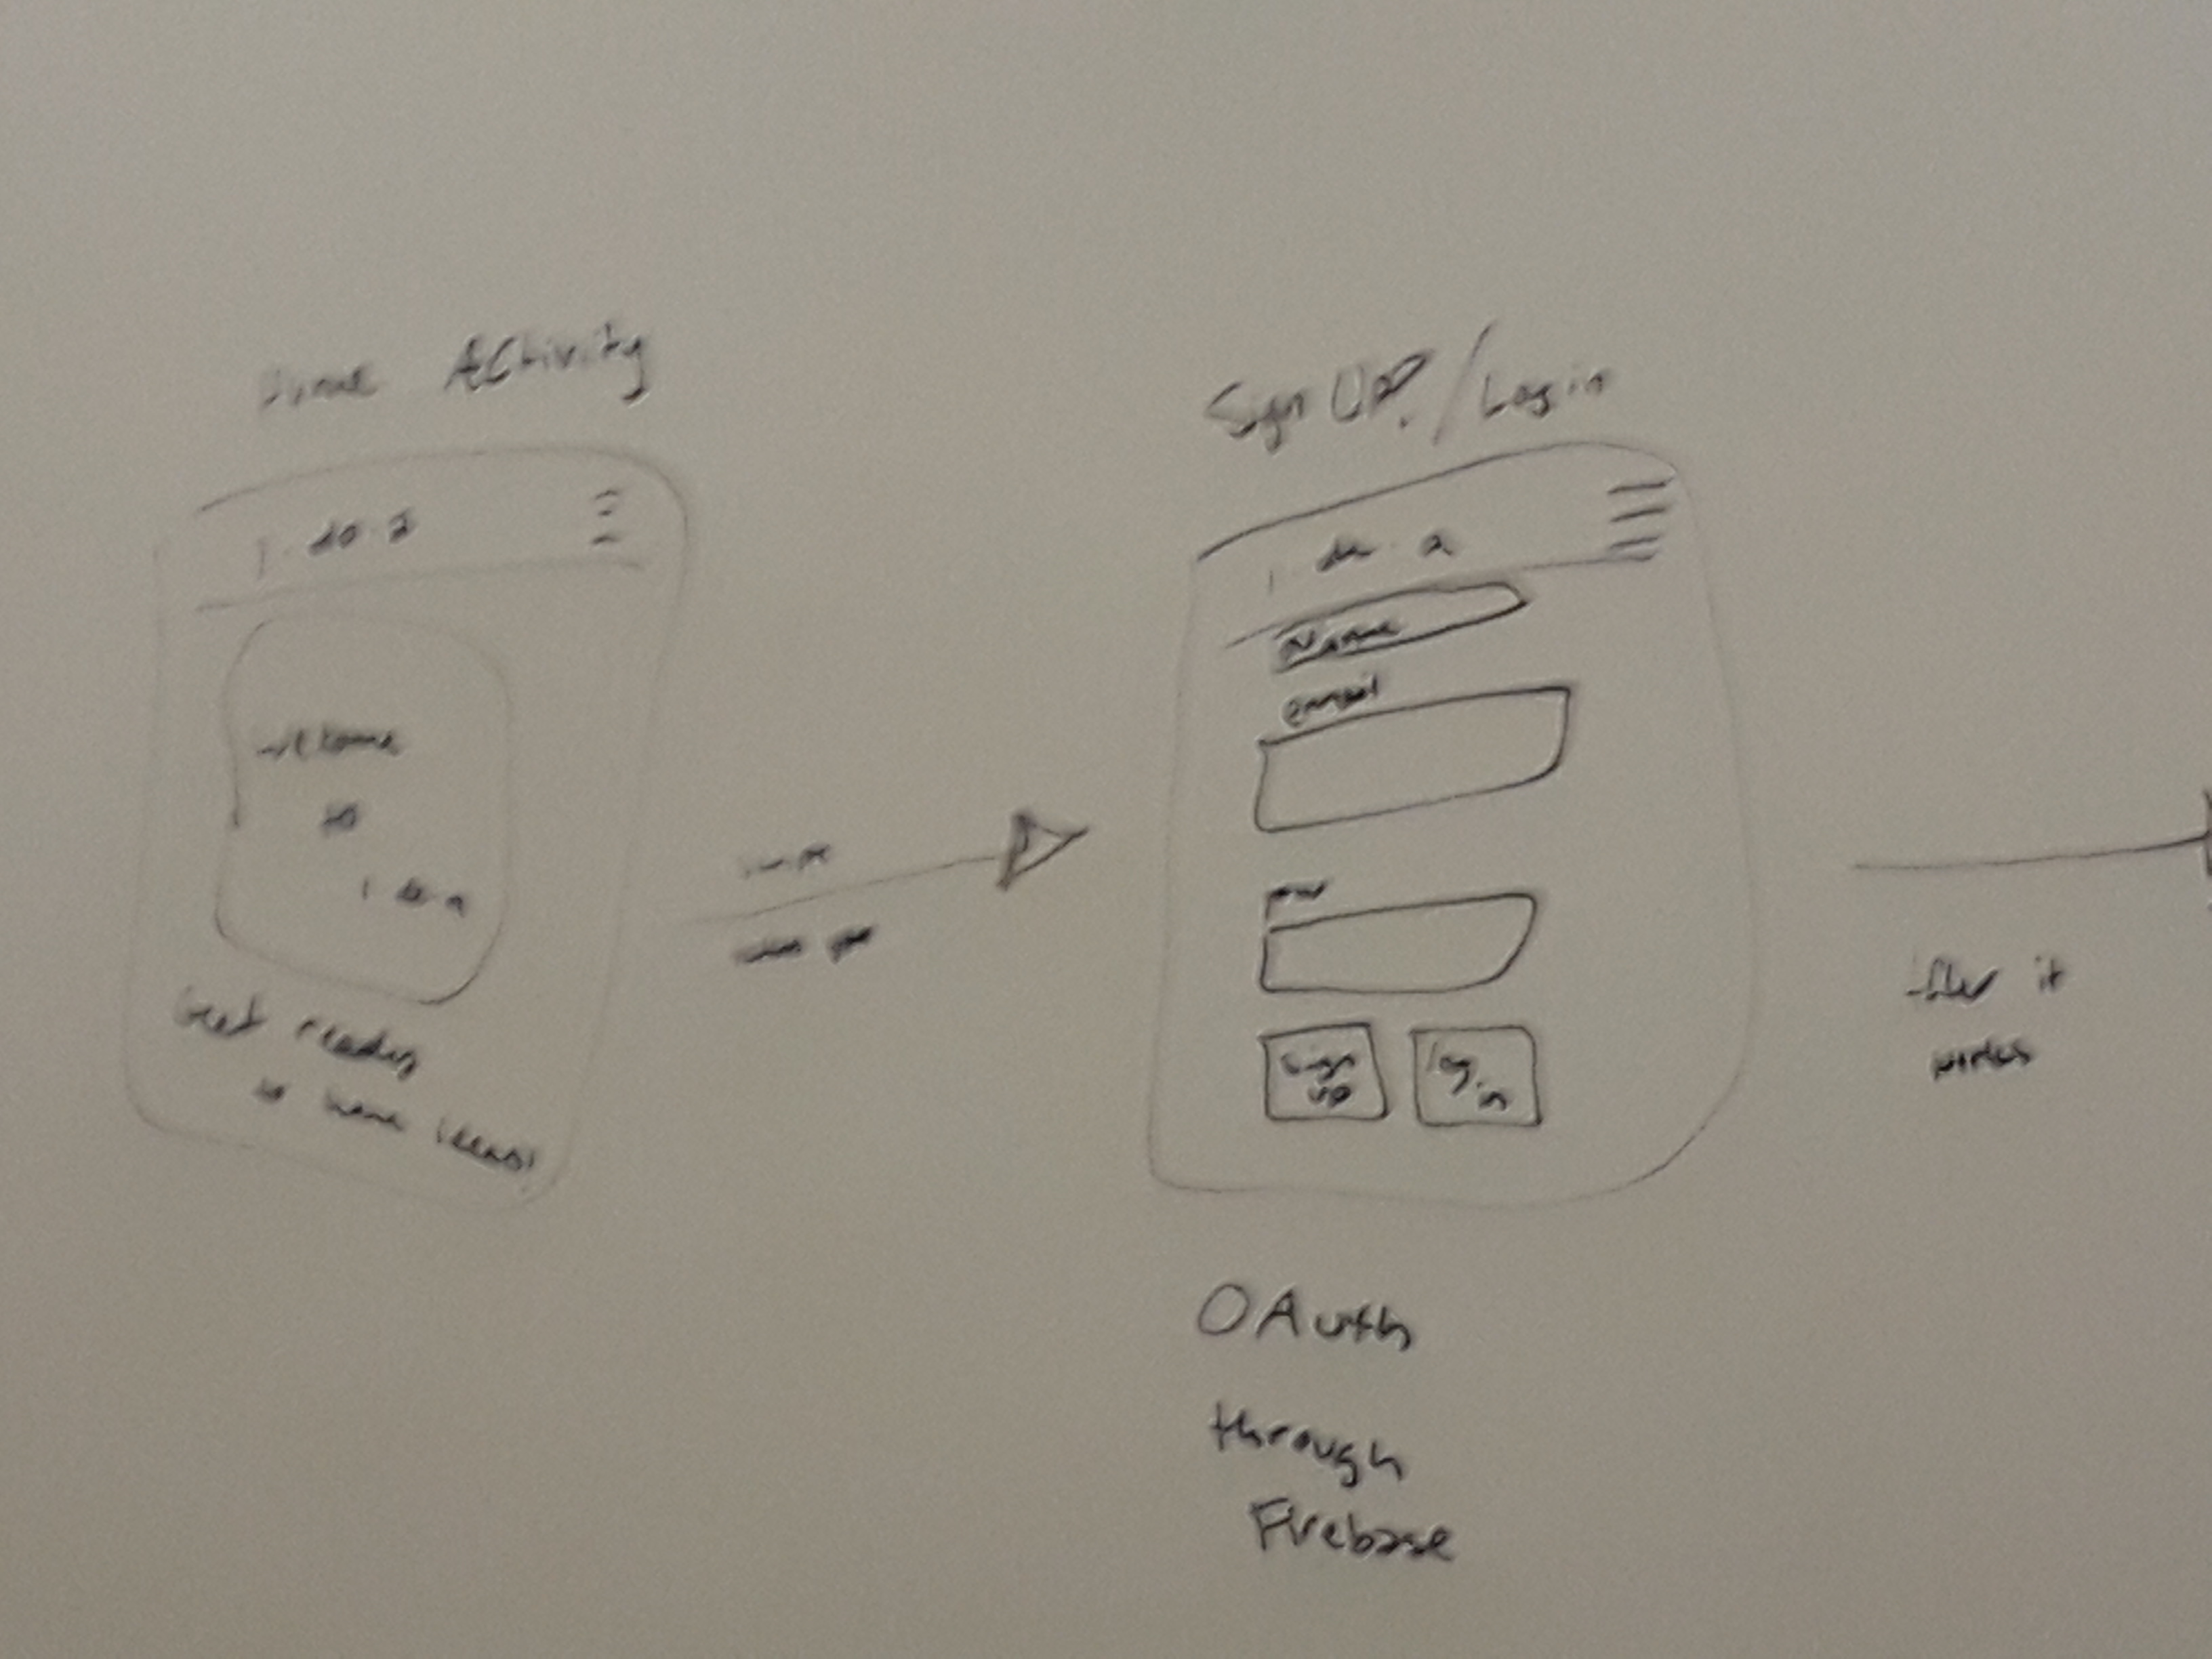 Home Activity
i.do.a
welcome
to
i.do.a
Get ready
to have ideas!
swipe
Sign UP. / Login
i.do.a
Name
email
pw
sign
up
log
in
OAuth
through
Firebase
after it
works